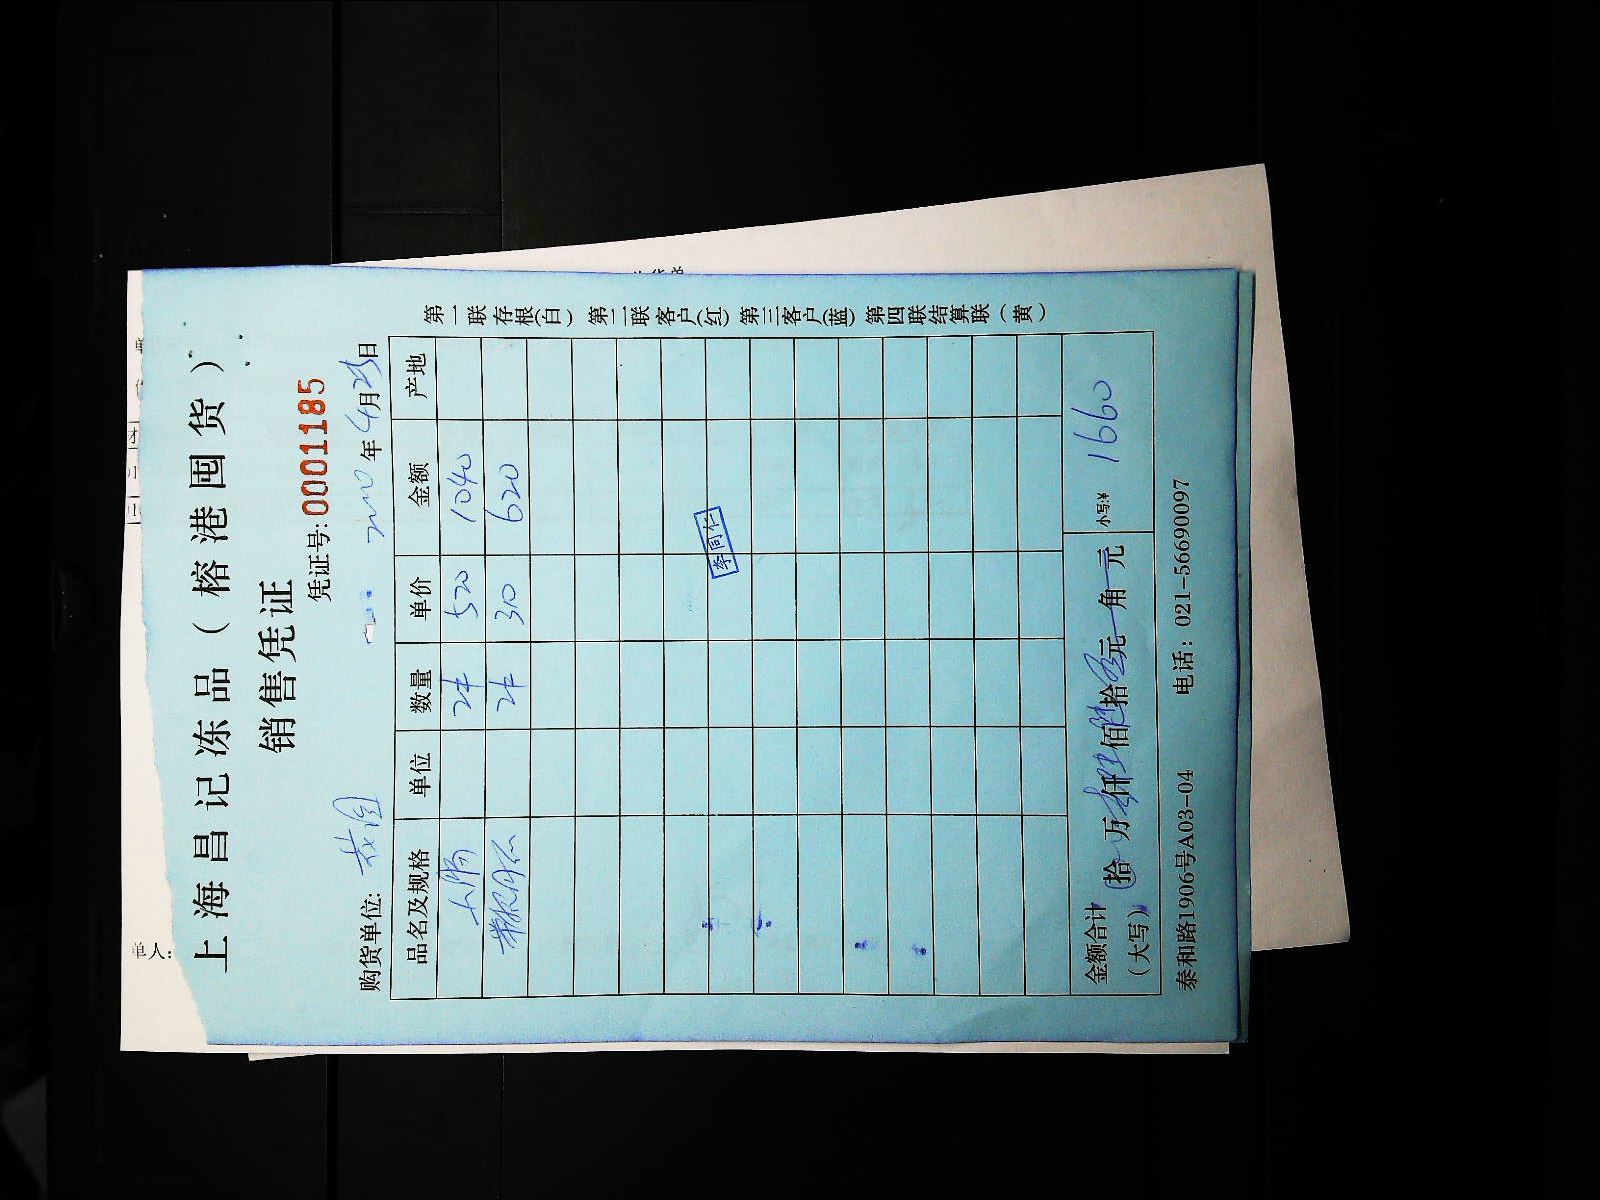 上海昌记冻品（榕港囤货）
销售凭证
凭证号: 0001185
购货单位: 年4月25日
品名及规格 单位 数量 单价 金额 产地
2件 520 1040
2件 310 620
李同仁
金额合计（大写） 拾 万 仟 佰 拾 元 角 元 小写:¥ 1660
泰和路1906号A03-04 电话：021-56690097
第一联存根(白) 第二联客户(红) 第三客户(蓝) 第四联结算联（黄）
单人: